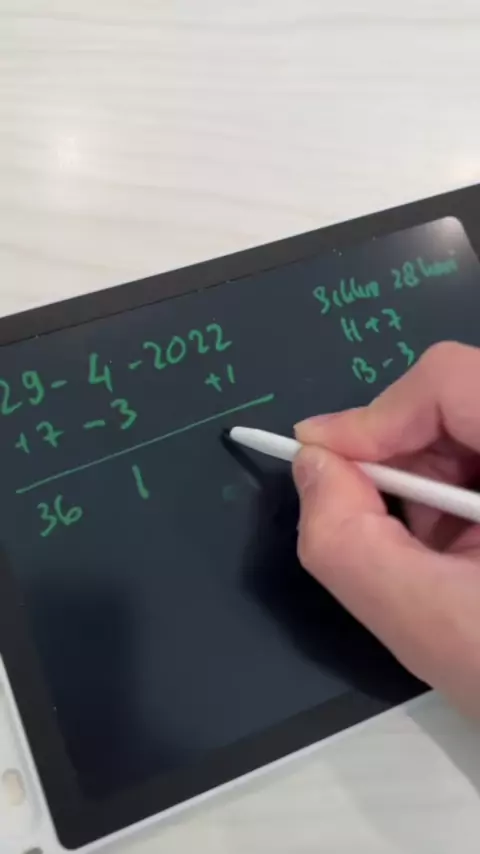 29 - 4 - 2022
+7 - 3 +1
36 1
Siklus 28 hari
H + 7
B - 3